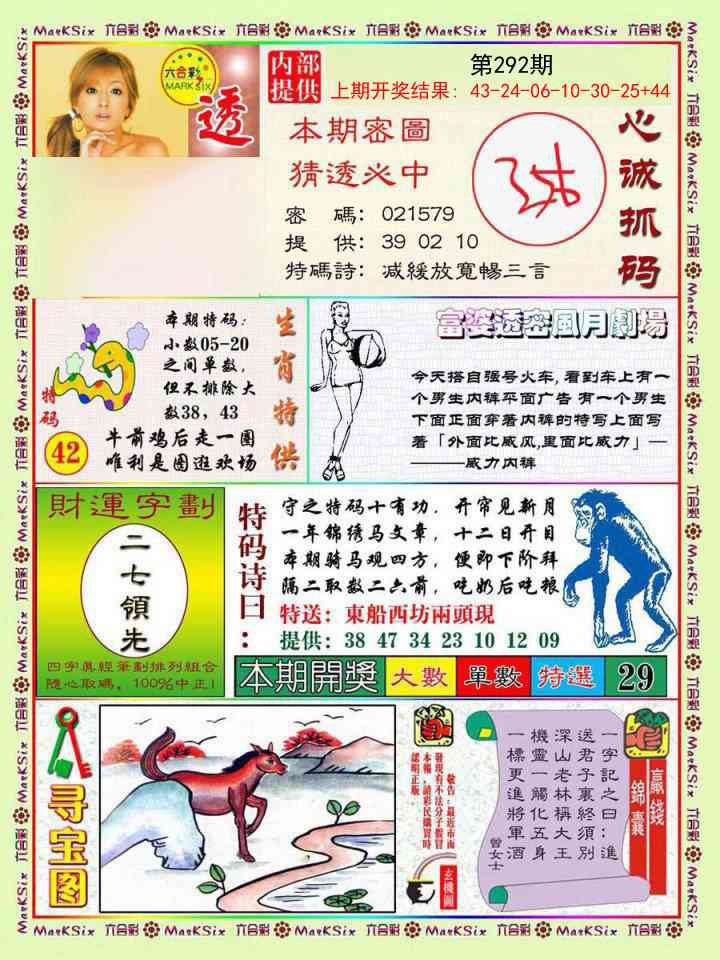 MarKSix 六合彩 MarKSix 六合彩 MarKSix 六合彩 MarKSix 六合彩 MarKSix 六合彩 MarKSix
六合彩
MARK SIX
透
内部
提供
第292期
上期开奖结果: 43-24-06-10-30-25+44
本期密圖
猜透必中
密 碼: 021579
提 供: 39 02 10
特碼詩: 减緩放寬暢三言
心诚抓码
本期特码:
小数05-20
之间单数,
但不排除大
数38, 43
特码
42
牛前鸡后走一圈
唯利是图逛欢场
生肖特供
富婆透密風月劇場
今天搭自强号火车, 看到车上有一
个男生内裤平面广告 有一个男生
下面正面穿着内裤的特写上面写
着「外面比威风,里面比威力」—
———威力内裤
財運字劃
二七領先
四字真經筆劃排列組合
随心取碼, 100%中正!
特码诗曰:
守之特码十有功, 开帘见新月
一年锦绣马文章, 十二日开目
本期骑马观四方, 便即下阶拜
隔二取数二六前, 吃奶后吃粮
特送: 東船西坊兩頭現
提供: 38 47 34 23 10 12 09
本期開獎 大數 單數 特選 29
寻宝图
敬告:最近市面
發現有不法分子假冒
本報,請彩民購買時
認明正版
玄機圖
一字記之曰:進
送君子裏終須別
深山老林稱大王
機靈一觸化五身
一標更進將軍酒
曾女士
贏錢
錦囊
MarKSix 六合彩 MarKSix 六合彩 MarKSix 六合彩 MarKSix 六合彩 MarKSix 六合彩 MarKSix